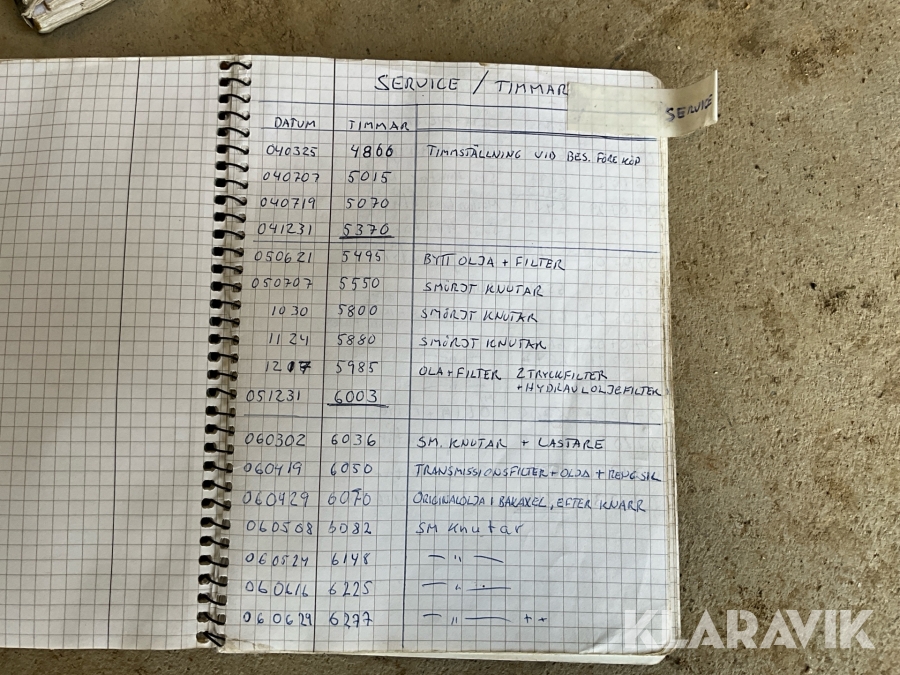 SERVICE / TIMMAR
SERVICE
DATUM TIMMAR
040325 4866 TIMMSTÄLLNING VID BES. FÖRE KÖP
040707 5015
040719 5070
041231 5370
050621 5495 BYTT OLJA + FILTER
050707 5550 SMÖRJT KNUTAR
1030 5800 SMÖRJT KNUTAR
1124 5880 SMÖRJT KNUTAR
1207 5985 OLA + FILTER 2 TRYCKFILTER
+ HYDRAULOLJEFILTER
051231 6003
060302 6036 SM. KNUTAR + LASTARE
060419 6050 TRANSMISSIONSFILTER + OLJA + RENG.SIL
060429 6070 ORIGINALOLJA I BAKAXEL, EFTER KNARR
060508 6082 SM Knutar
060524 6148 — " —
060616 6225 — " —
060629 6277 — " — ++
KLARAVIK